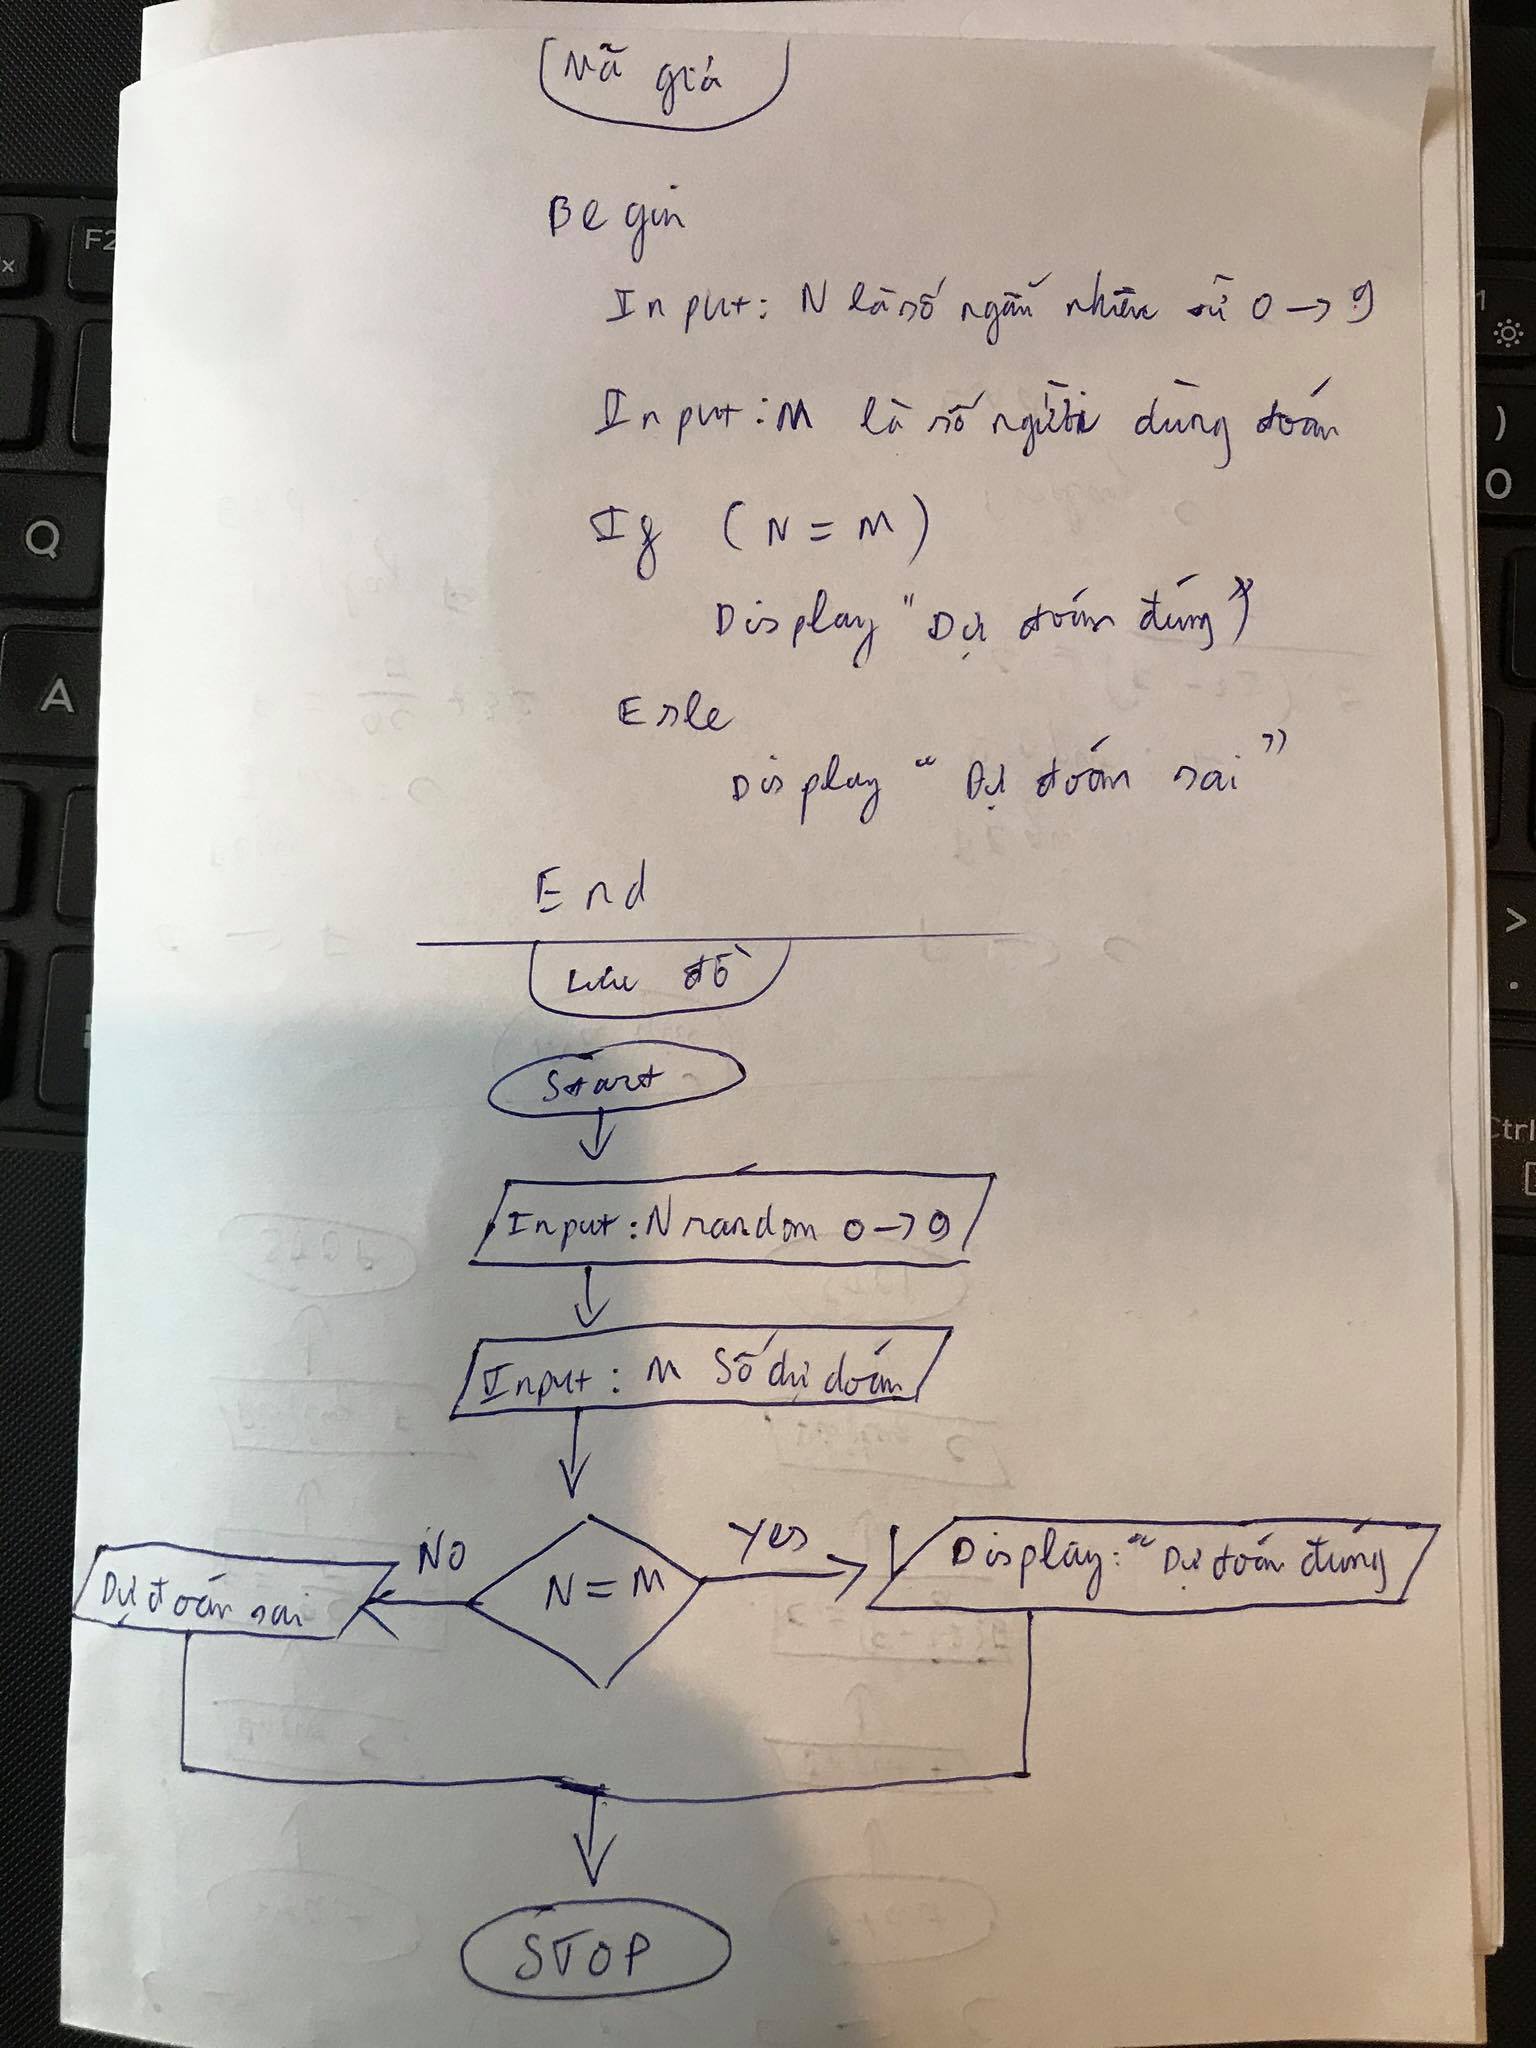 Mã giả
Begin
Input: N là số ngẫu nhiên từ 0 → 9
Input: M là số người dùng đoán
If (N = M)
Display "Dự đoán đúng"
Esle
Display "Dự đoán sai"
End
Lưu đồ
Start
Input: N random 0 → 9
Input: M Số dự đoán
NO
N = M
Yes
Dự đoán sai
Display: "Dự đoán đúng
STOP
F2
Q
A
)
0
>
.
Ctrl